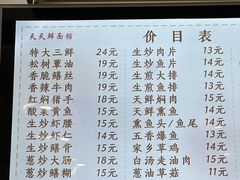 天天鲜面馆
价目表
特大三鲜 24元
松树蕈油 19元
香脆鳝丝 21元
香辣牛肉 19元
红焖猪手 18元
酸菜黄鱼 15元
生炒虾腰 15元
生炒虾仁 14元
生炒鳝背 15元
葱炒大肠 18元
葱炒鳝糊 15元
生炒肉片 13元
生炒鱼片 14元
生煎大排 14元
天鲜焖肉 15元
天鲜熏鱼 15元
熏鱼头/鱼尾 14元
五香爆鱼 13元
家乡草鸡 14元
白汤走油肉 15元
葱油草菇 11元